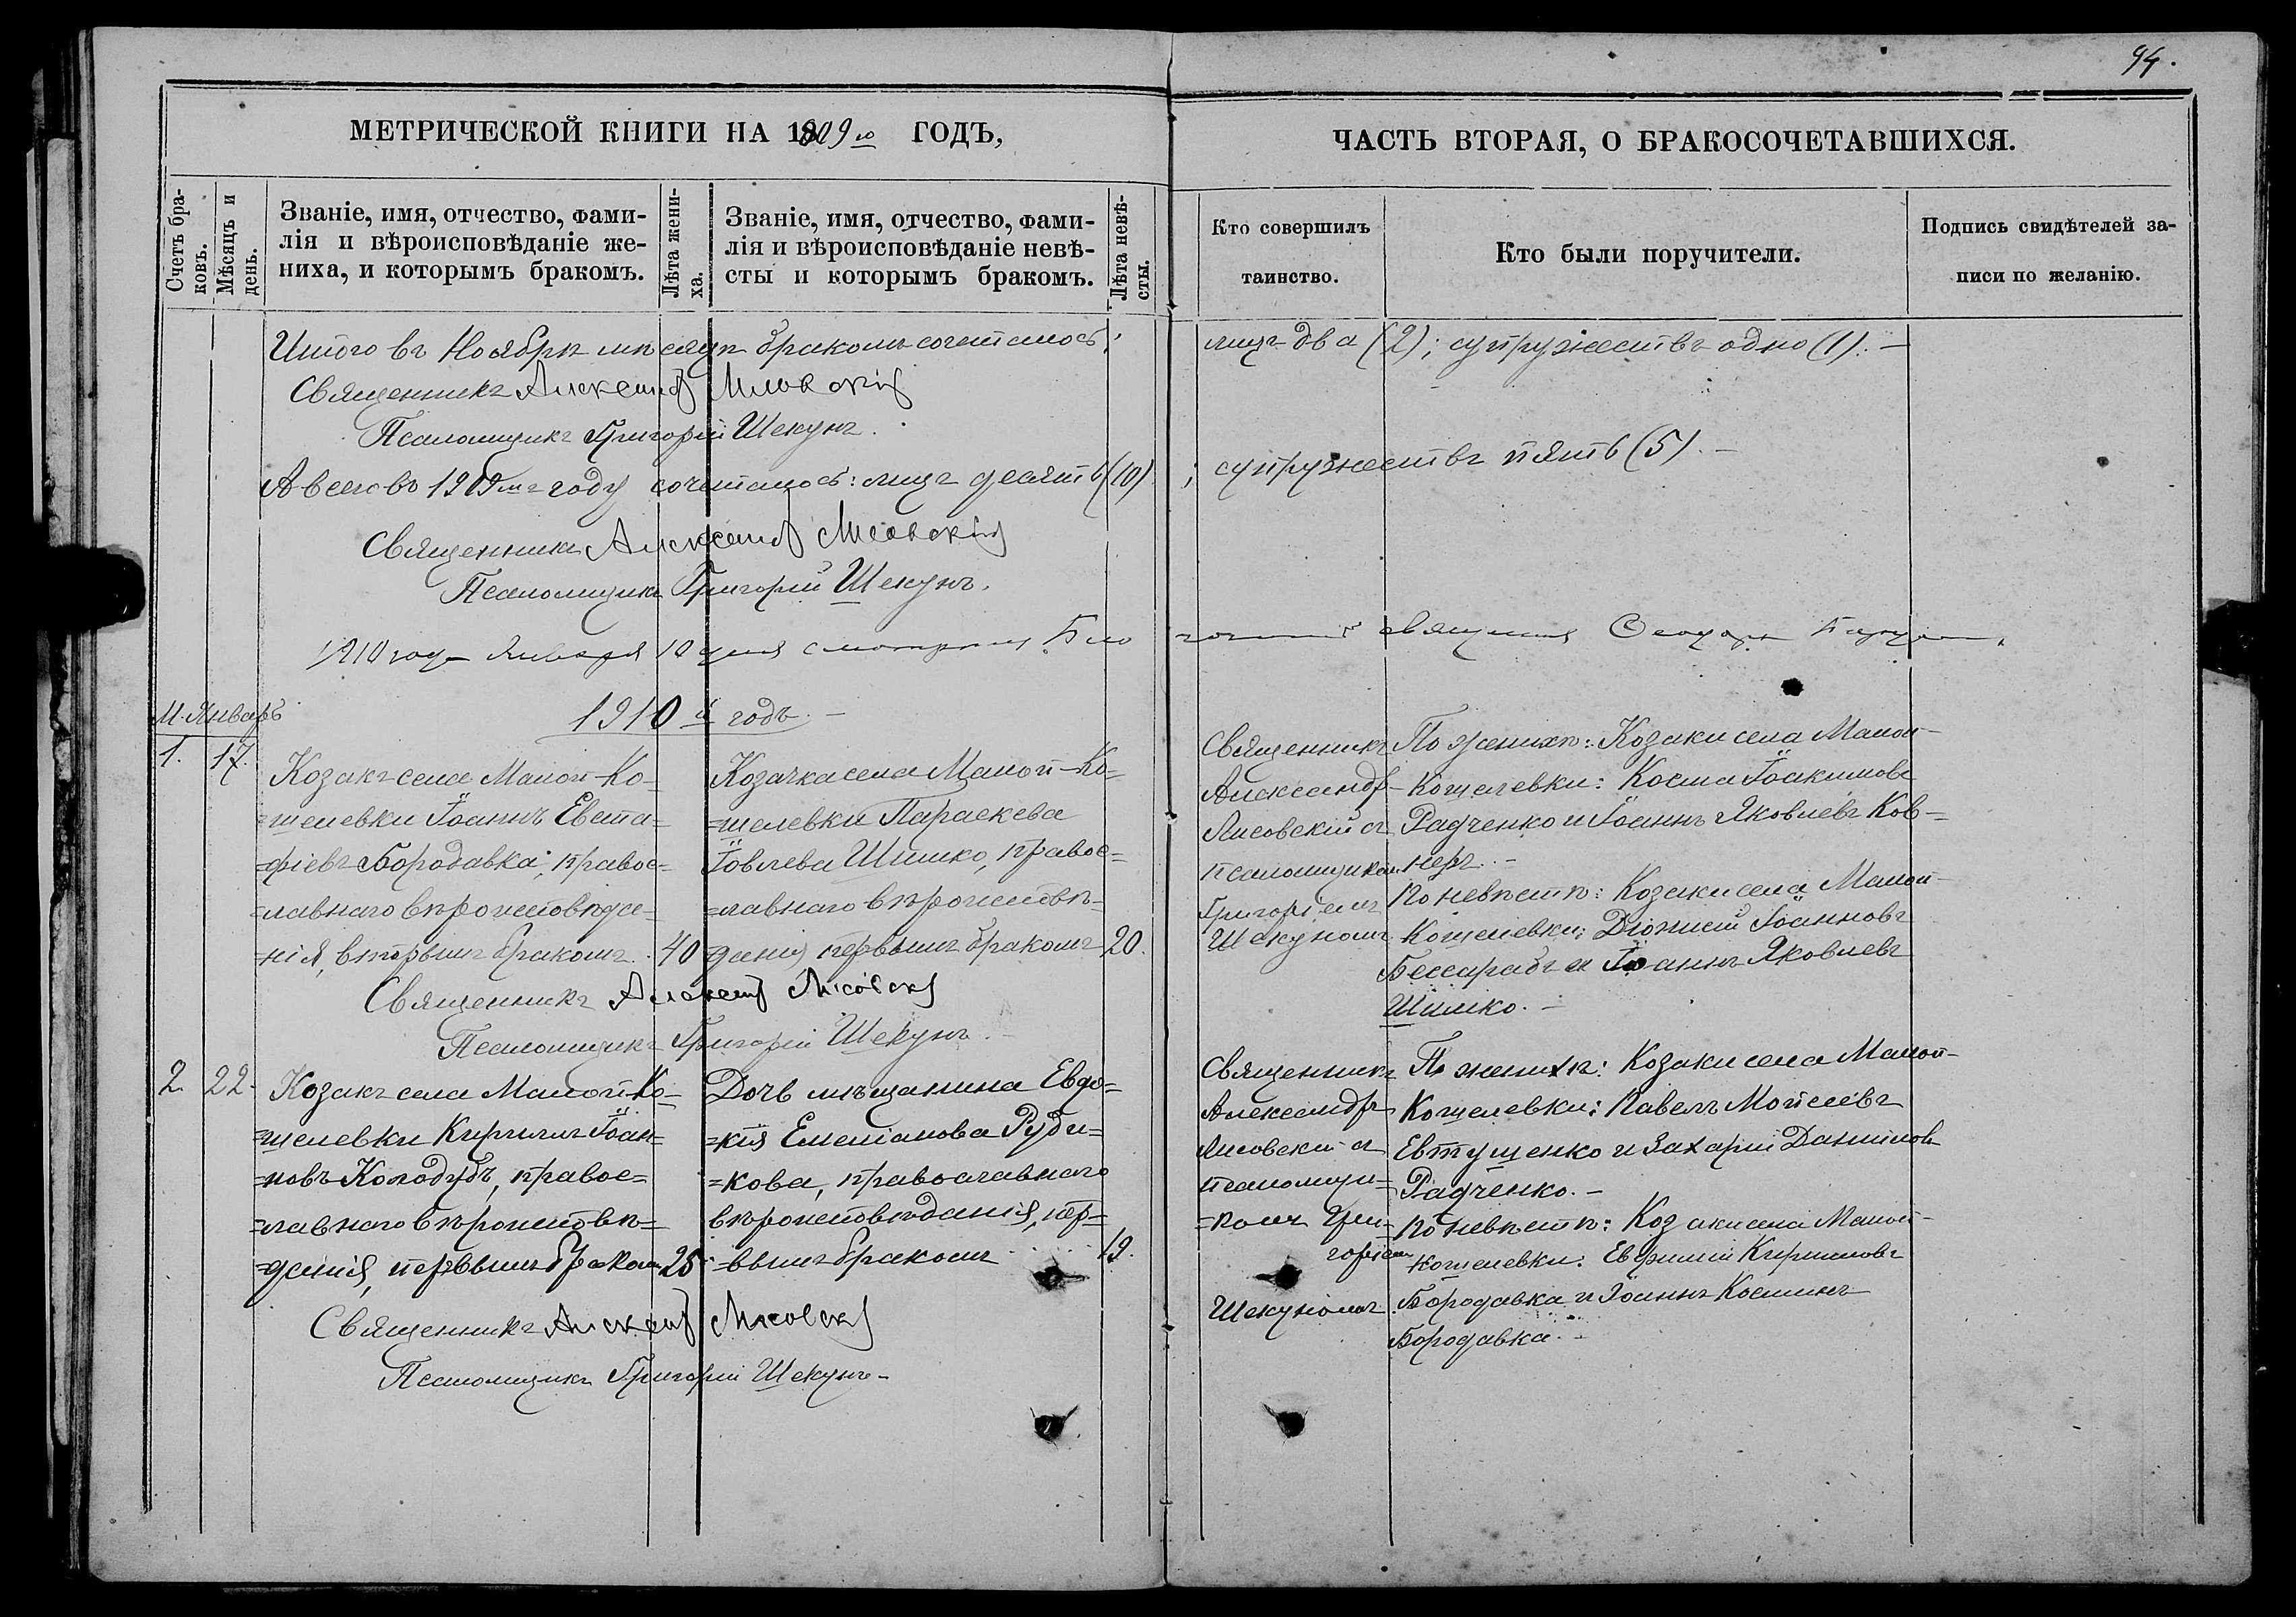 94.
МЕТРИЧЕСКОЙ КНИГИ НА 1909го ГОДЪ,
ЧАСТЬ ВТОРАЯ, О БРАКОСОЧЕТАВШИХСЯ.
Счетъ бра-
ковъ.
Мѣсяцъ и
день.
Званіе, имя, отчество, фами-
лія и вѣроисповѣданіе же-
ниха, и которымъ бракомъ.
Лѣта жени-
ха.
Званіе, имя, отчество, фами-
лія и вѣроисповѣданіе невѣ-
сты и которымъ бракомъ.
Лѣта невѣ-
сты.
Кто совершилъ
таинство.
Кто были поручители.
Подпись свидѣтелей за-
писи по желанію.
Итого въ Ноябрѣ мѣсяцѣ бракомъ сочеталось: лицъ два (2); супружествъ одно (1). —
Священникъ Александр Лисовскій
Псаломщикъ Григорій Шекунъ.
А всего въ 1909мъ году сочеталось: лицъ десять (10); супружествъ пять (5). —
Священникъ Александр Лисовскій
Псаломщикъ Григорій Шекунъ.
1910 года Января 10 дня смотрѣлъ Благочинный священникъ Ѳеодоръ
М. Январь
1910й годъ. —
1. 17.
Козакъ села Малой-Ко-
=шелевки Іоаннъ Евста-
=фіевъ Бородавка, правос-
=лавнаго вѣроисповѣда-
=нія, вторымъ бракомъ. 40
Козачка села Малой-Ко=
=шелевки Параскева
Іовлева Шимко, правос=
=лавнаго вѣроисповѣ=
=данія, первымъ бракомъ 20.
Священникъ
Александр
Лисовскій съ
псаломщикомъ
Григоріемъ
Шекуномъ
По женихѣ: Козаки села Малой-
Кошелевки: Косма Іоакимовъ
Радченко и Іоаннъ Яковлевъ Ков-=
неръ. —
По невѣстѣ: Козаки села Малой-
Кошелевки: Діонисій Іоанновъ
Бессарабъ и Іоаннъ Яковлевъ
Шимко. —
Священникъ Александр Лисовскій
Псаломщикъ Григорій Шекунъ. —
2. 22.
Козакъ села Малой-Ко=
=шелевки Кириллъ Іоан=
=новъ Колодубъ, правос=
=лавнаго вѣроисповѣ=
=данія, первымъ бракомъ 25
Дочь мѣщанина Евдо=
=кія Емеліанова Руди=
=кова, православнаго
вѣроисповѣданія, пер=
=вымъ бракомъ 19.
Священникъ
Александръ
Лисовскій съ
псаломщи=
=комъ Гри=
горіем
Шекуномъ
По женихѣ: Козаки села Малой-
Кошелевки: Павелъ Моисеевъ
Евтушенко и Захарій Даниловъ
Радченко. —
По невѣстѣ: Козаки села Малой-
Кошелевки: Евфимій Кирилловъ
Бородавка и Іоаннъ Косминъ
Бородавка. —
Священникъ Александр Лисовскій
Псаломщикъ Григорій Шекунъ. —